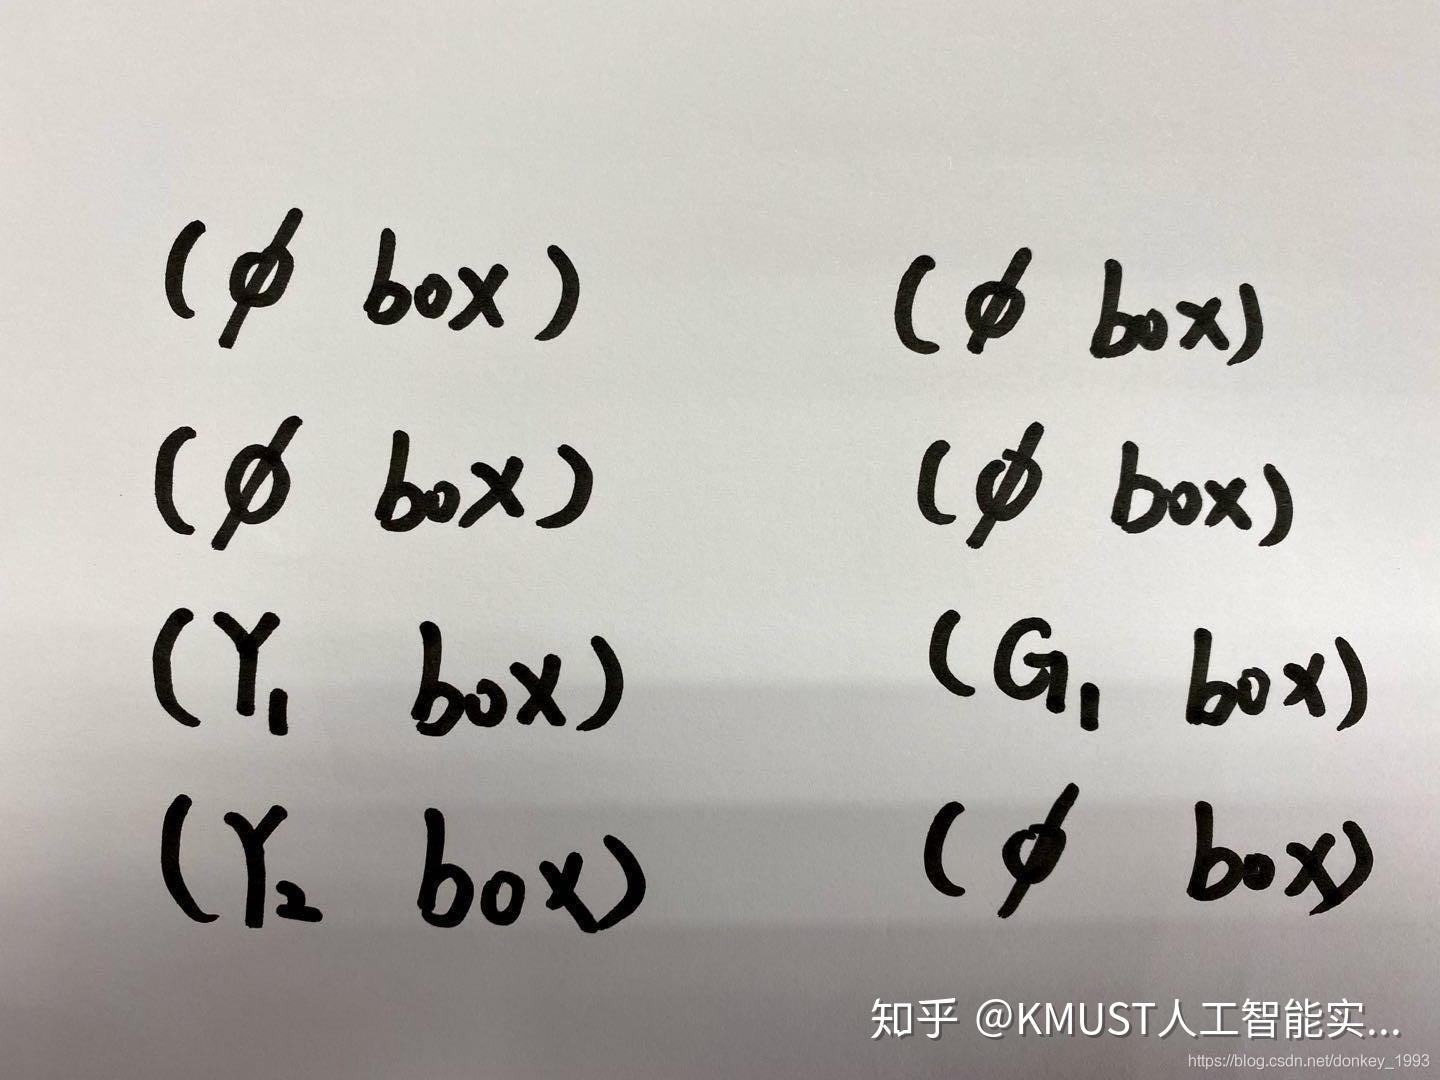 (ϕ box) (ϕ box)
(ϕ box) (ϕ box)
(Y₁ box) (G₁ box)
(Y₂ box) (ϕ box)
知乎 @KMUST人工智能实...
https://blog.csdn.net/donkey_1993